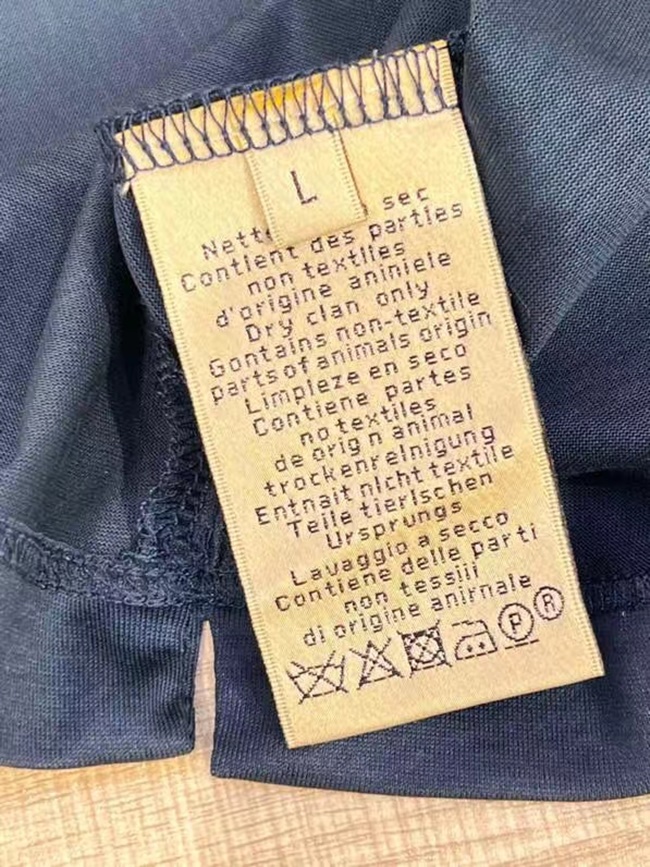 L
Nette sec
Contient des parties
non textlles
d'origine aniniele
Dry clan only
Gontains non-textile
parts of animals origin
Limpleze en seco
Contiene partes
no textiles
de orign animal
trockenrelnigung
Entnait nlcht textile
Teile tierlschen
Ursprungs
Lavaggio a secco
Contiene delle parti
non tessili
di origine anirnale
P
R